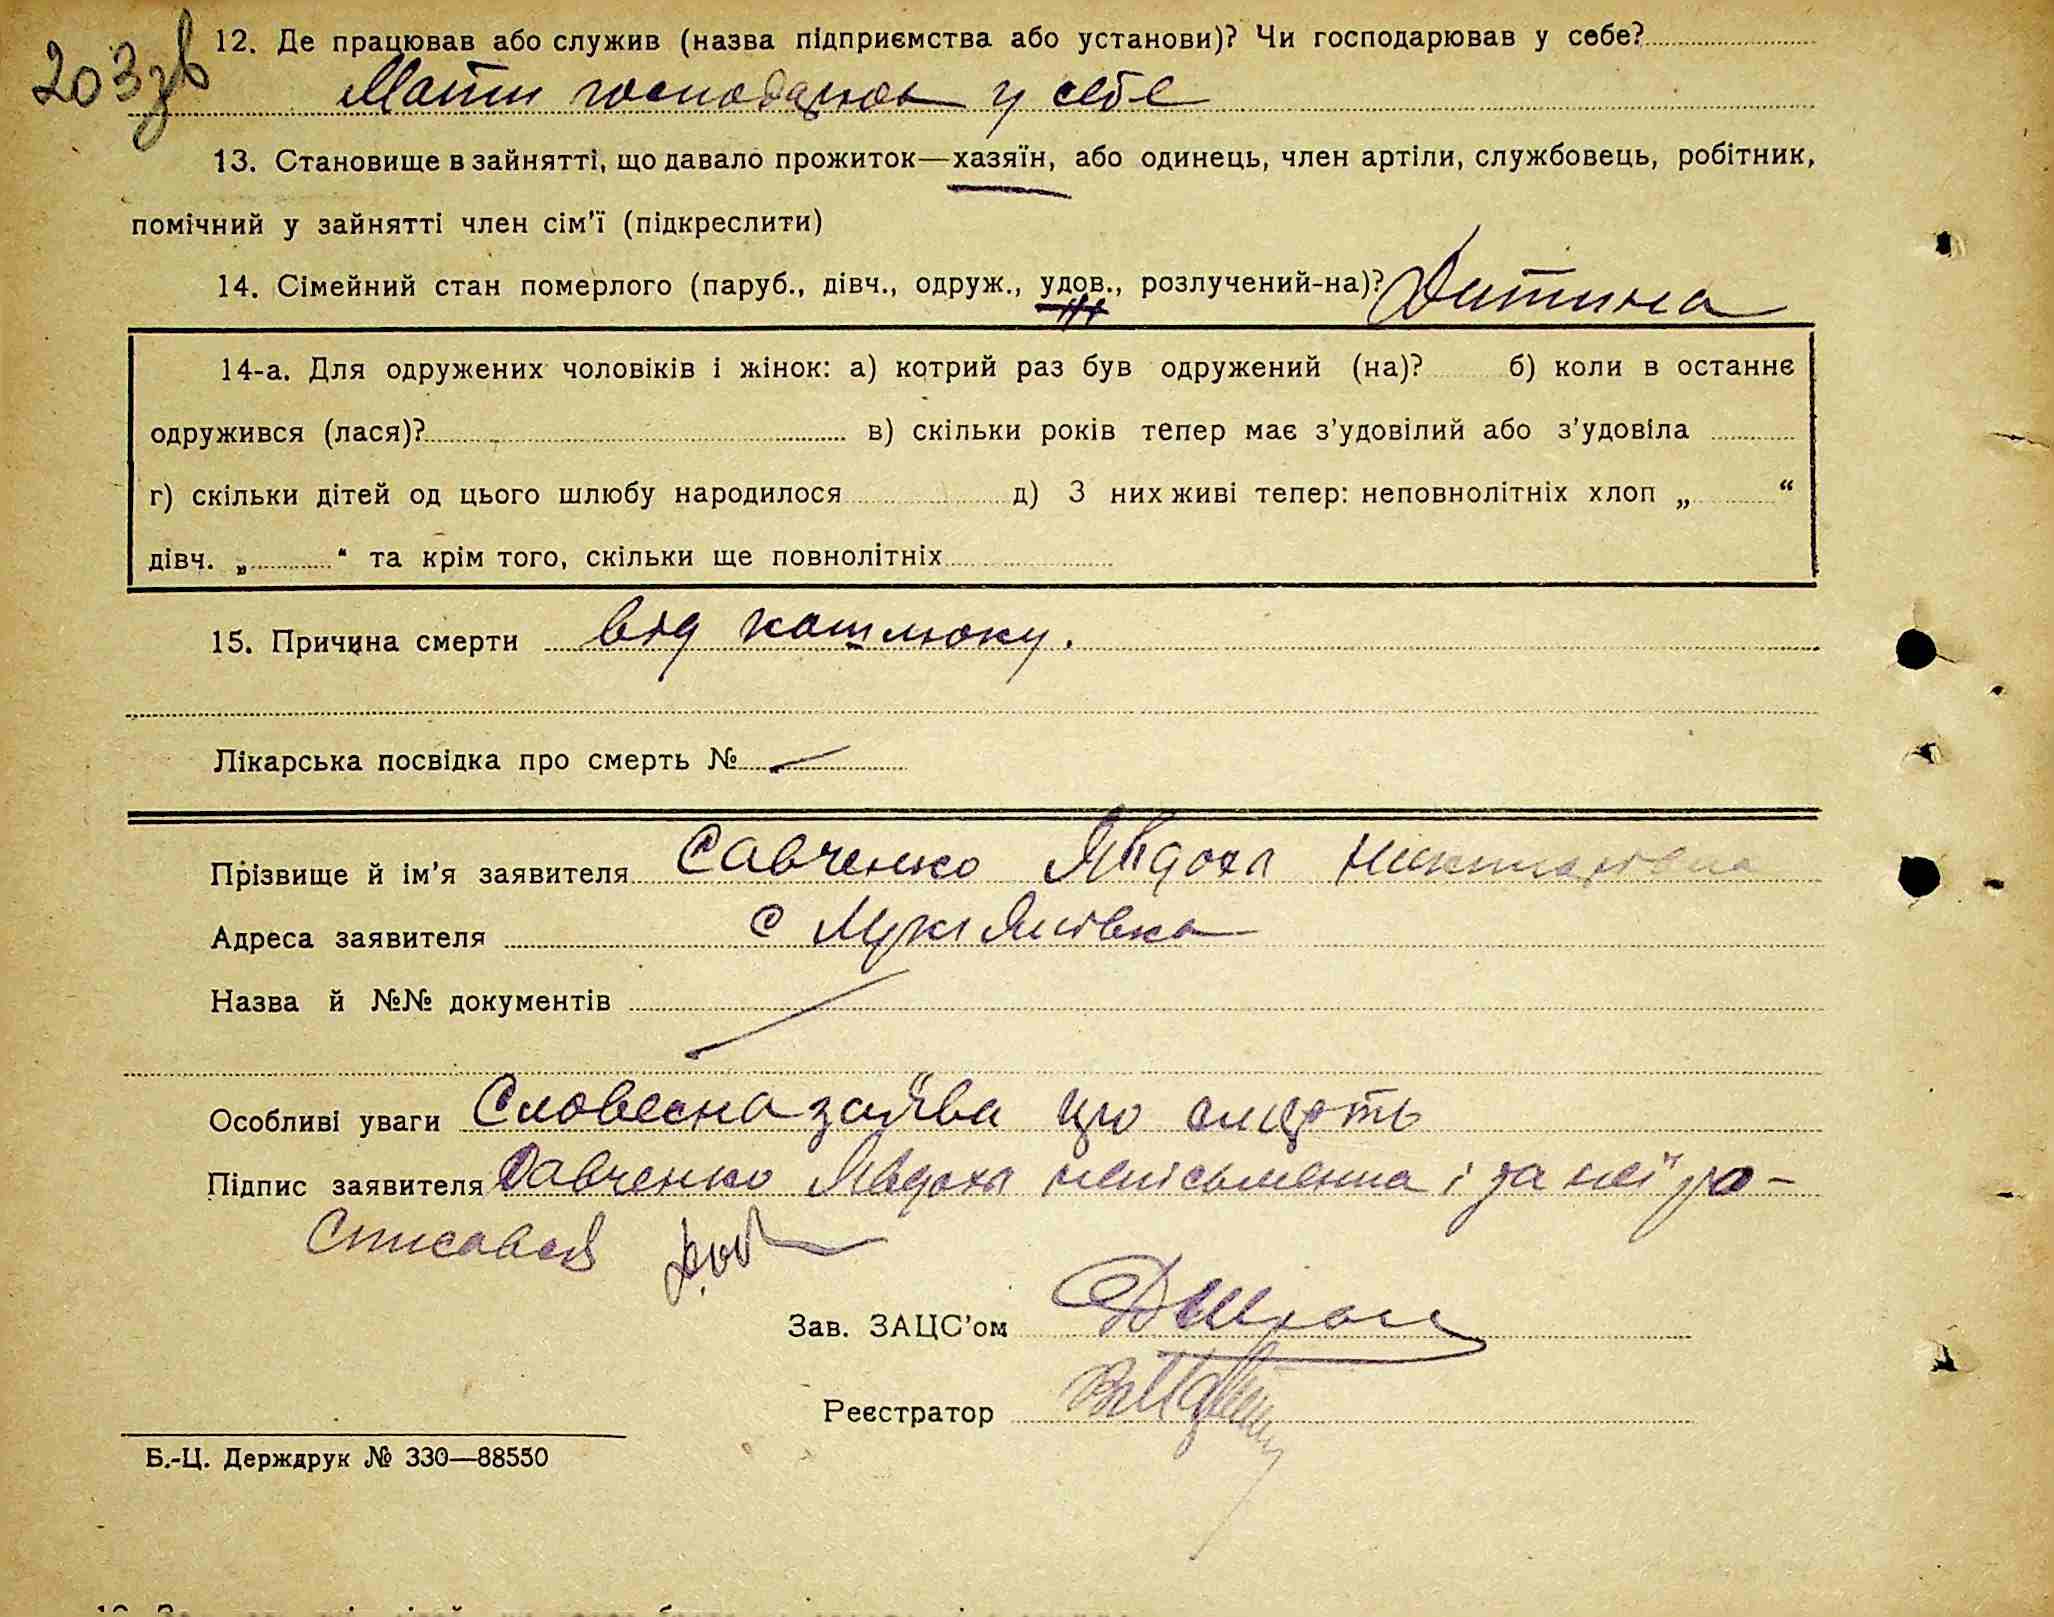 203зв
12. Де працював або служив (назва підприємства або установи)? Чи господарював у себе?
Мати господарює у себе
13. Становище в зайнятті, що давало прожиток—хазяїн, або одинець, член артіли, службовець, робітник,
помічний у зайнятті член сім'ї (підкреслити)
14. Сімейний стан померлого (паруб., дівч., одруж., удов., розлучений-на)? Дитина
14-а. Для одружених чоловіків і жінок: а) котрий раз був одружений (на)? б) коли в останнє
одружився (лася)? в) скільки років тепер має з'удовілий або з'удовіла
г) скільки дітей од цього шлюбу народилося д) З них живі тепер: неповнолітніх хлоп „ “
дівч. „ “ та крім того, скільки ще повнолітніх
15. Причина смерти від кашлюку.
Лікарська посвідка про смерть №
Прізвище й ім'я заявителя Савченко Явдоха
Адреса заявителя с Лукіянівка
Назва й №№ документів
Особливі уваги Словесна заява про смерть
Підпис заявителя Савченко Явдоха неписьменна і за неї ро-
списався
Зав. ЗАЦС'ом
Реєстратор
Б.-Ц. Держдрук № 330—88550